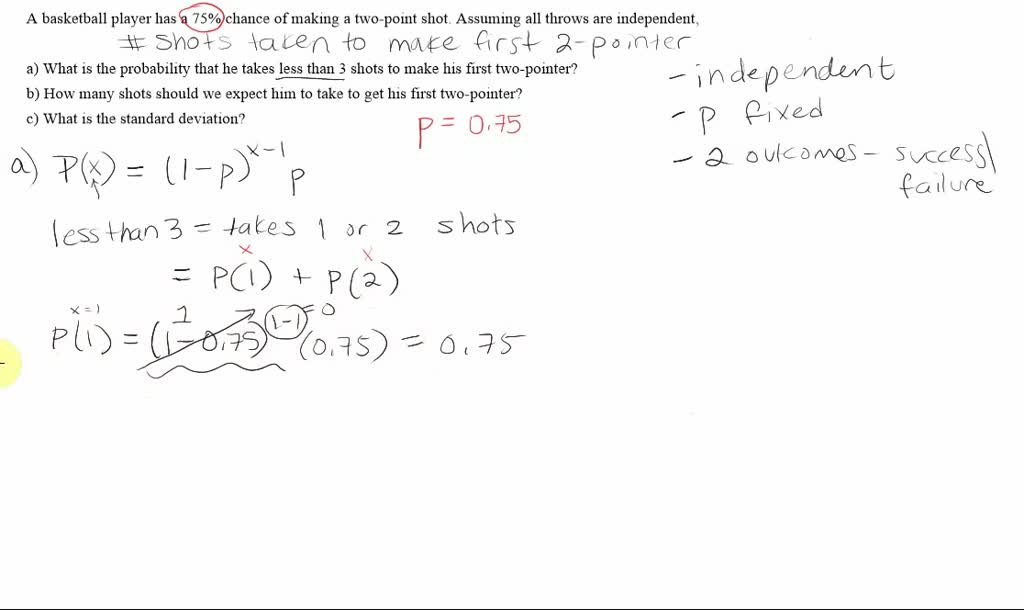 A basketball player has a 75% chance of making a two-point shot. Assuming all throws are independent,
# shots taken to make first 2-pointer
a) What is the probability that he takes less than 3 shots to make his first two-pointer?
b) How many shots should we expect him to take to get his first two-pointer?
c) What is the standard deviation?
p = 0.75
- independent
- p fixed
- 2 outcomes - success/
failure
a) P(x) = (1-p)^x-1 p
less than 3 = takes 1 or 2 shots
x x
= P(1) + P(2)
x=1 1 =0
P(1) = (1-0.75)^1-1 (0.75) = 0.75